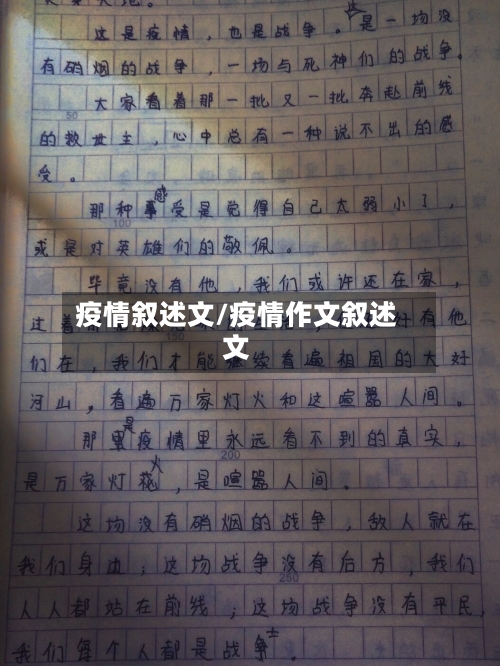 这是疫情,也是战争。这是一场没
有硝烟的战争,一场与死神们的战争。
大家看着那一批又一批奔赴前线
50
的救世主,心中总有一种说不出的感
受。
那种感受是觉得自己太弱小了,
100
或是对英雄们的敬佩。
毕竟没有他,我们或许还在家,
过着
有他
150
们在,我们才能继续看遍祖国的大好
河山,看遍万家灯火和这喧嚣人间。
那是疫情里永远看不到的真实,
200
是万家灯火,是喧嚣人间。
这场没有硝烟的战争,敌人就在
我们身边;这场战争没有后方,我们
250
人人都站在前线;这场战争没有平民,
我们每个人都是战士。
疫情叙述文/疫情作文叙述
文